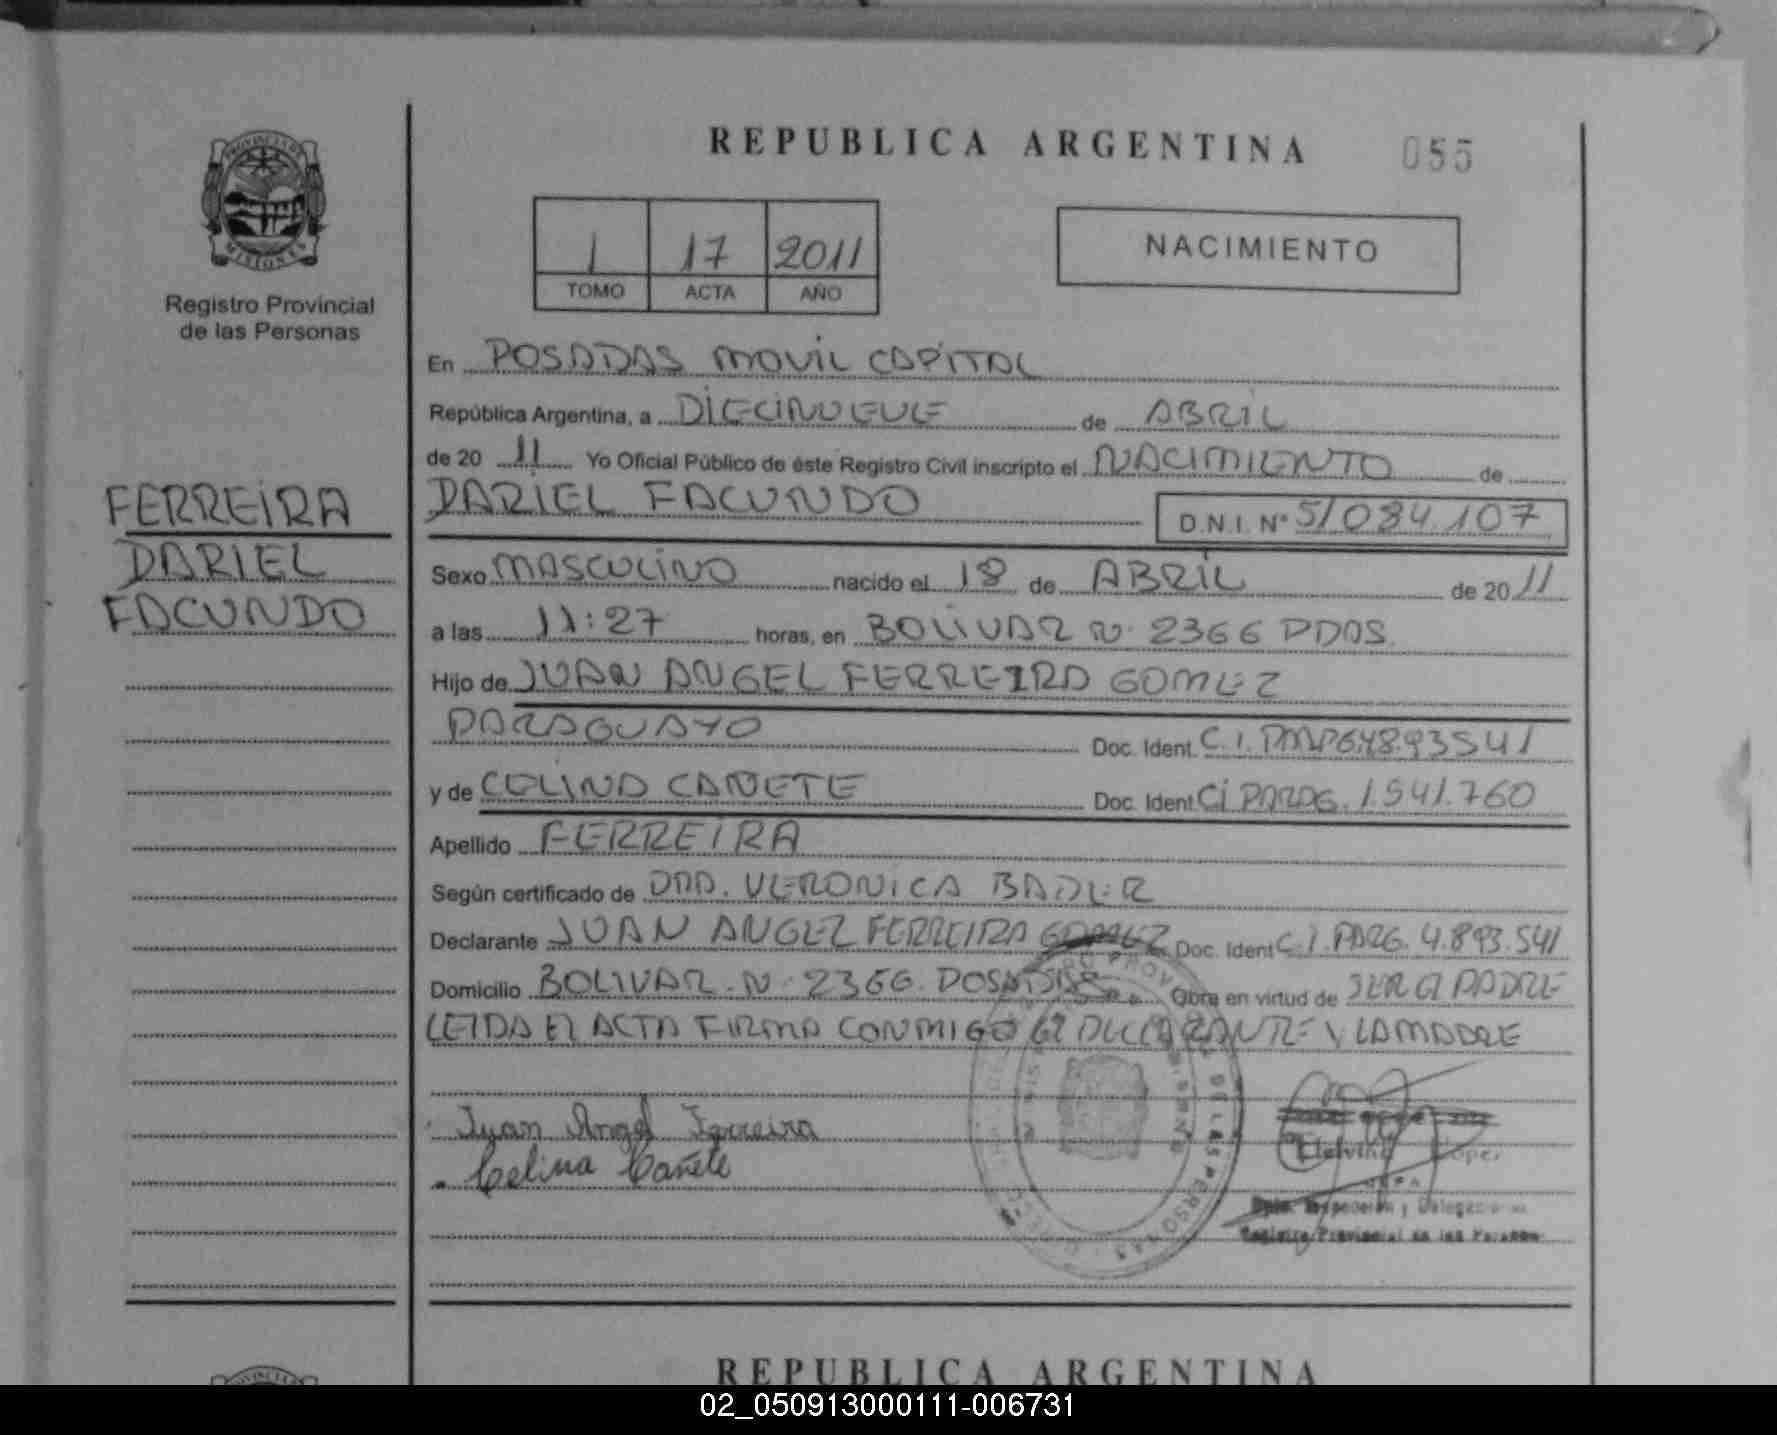 REPUBLICA ARGENTINA
055
PROVINCIA DE
MISIONES
Registro Provincial
de las Personas
1 17 2011
TOMO ACTA AÑO
NACIMIENTO
En POSADAS MOVIL CAPITAL
República Argentina, a DIECINUEVE de ABRIL
de 20 11 Yo Oficial Público de éste Registro Civil inscripto el NACIMIENTO de
FERREIRA
DARIEL
FACUNDO
DARIEL FACUNDO D.N.I. Nº 51084.107
Sexo MASCULINO nacido el 18 de ABRIL de 2011
a las 11:27 horas, en BOLIVAR N. 2366 PDAS.
Hijo de JUAN ANGEL FERREIRA GOMEZ
PARAGUAYO Doc. Ident. C.I.
y de CELINA CAÑETE Doc. Ident. CI PARAG. 1.541.760
Apellido FERREIRA
Según certificado de DRA. VERONICA BADER
Declarante JUAN ANGEL FERREIRA GOMEZ Doc. Ident C.I. PARG. 4.893.541
Domicilio BOLIVAR N. 2366. POSADAS Obra en virtud de SER EL PADRE
LEIDA EL ACTA FIRMA CONMIGO EL DECLARANTE Y LA MADRE
Juan Angel Ferreira
Celina Cañete
Dpto. Inspección y Delegaciones
Registro Provincial de las Personas
REPUBLICA ARGENTINA
02_050913000111-006731